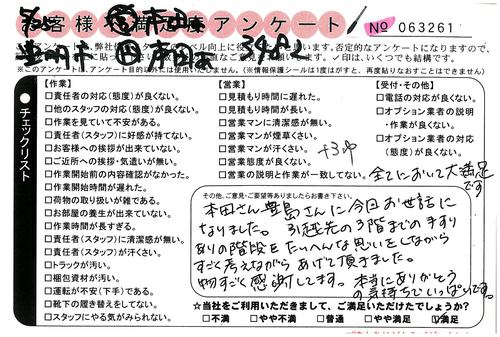 お客様満足度アンケート
№ 063261
※このアンケートは、アンケート目的以外には使用いたしません。(※情報保護シールは1度はがすと、再度貼りなおすことはできません)
チェックリスト
【作業】
□責任者の対応(態度)が良くない。
□他のスタッフの対応(態度)が良くない。
□作業を見ていて不安がある。
□責任者(スタッフ)に好感が持てない。
□お客様への挨拶が出来ていない。
□ご近所への挨拶・気遣いが無い。
□作業開始前の内容確認がなかった。
□作業開始時間が遅れた。
□荷物の取り扱いが雑である。
□お部屋の養生が出来ていない。
□作業時間が長すぎる。
□責任者(スタッフ)に清潔感が無い。
□責任者(スタッフ)が汗くさい。
□トラックが汚い。
□梱包資材が汚い。
□運転が不安(下手)である。
□靴下の履き替えをしてない。
□スタッフにやる気がみられない。
【営業】
□見積もり時間に遅れた。
□見積もり時間が長い。
□営業マンに清潔感が無い。
□営業マンが煙草くさい。
□営業マンが汗くさい。
□営業態度が良くない。
□営業の説明と作業が一致してない。
【受付・その他】
□電話の対応が良くない。
□オプション業者の説明
・作業が良くない。
□オプション業者の対応
(態度)が良くない。
全てにおいて大満足
です
その他、ご意見・ご要望等ありましたらお書き下さい。
本田さん豊島さんに今回お世話に
なりました。引越先の3階までの手すり
ありの階段をたいへんな思いをしながら
すごく考えながらあげて頂きました。
物すごく感謝してます。本当にありがとう
の気持ちでいっぱいです。
☆当社をご利用いただきまして、ご満足いただけたでしょうか?
□不満 □やや不満 □普通 □やや満足 ☑満足